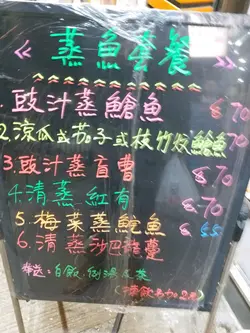 蒸魚套餐
1.豉汁蒸鱠魚 8.70
2.涼瓜或茄子或枝竹炆鱠魚 8.70
3.豉汁蒸盲曹 8.70
4.清蒸紅有 8.70
5.梅菜蒸鯇魚 8
6.清蒸沙巴龍躉
白飯